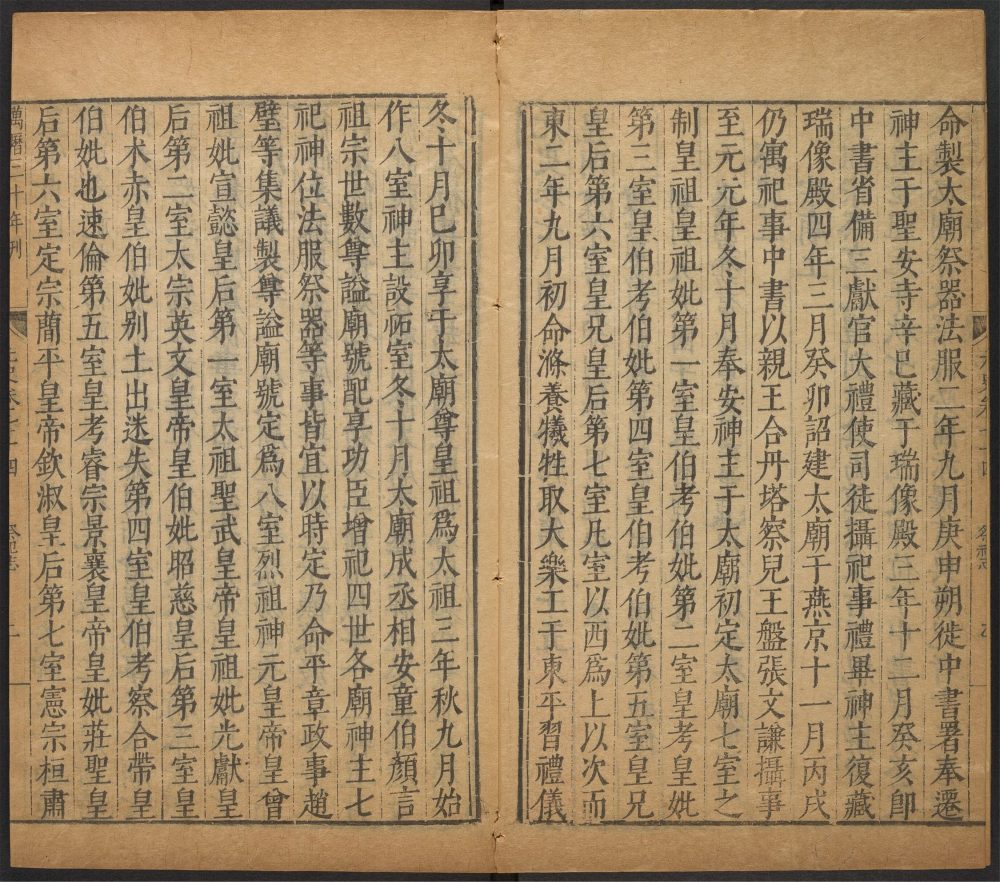 命製太廟祭器法服二年九月庚申朔徙中書署奉遷
神主于聖安寺辛巳藏于瑞像殿三年十二月癸亥卽
中書省備三獻官大禮使司徒攝祀事禮畢神主復藏
瑞像殿四年三月癸卯詔建太廟于燕京十一月丙戌
仍寓祀事中書以親王合丹塔察兒王盤張文謙攝事
至元元年冬十月奉安神主于太廟初定太廟七室之
制皇祖皇祖妣第一室皇伯考伯妣第二室皇考皇妣
第三室皇伯考伯妣第四室皇伯考伯妣第五室皇兄
皇后第六室皇兄皇后第七室凡室以西爲上以次而
東二年九月初命滌養犧牲取大樂工于東平習禮儀
冬十月己卯享于太廟尊皇祖爲太祖三年秋九月始
作八室神主設祏室冬十月太廟成丞相安童伯顏言
祖宗世數尊謚廟號配享功臣增祀四世各廟神主七
祀神位法服祭器等事皆宜以時定乃命平章政事趙
璧等集議製尊謚廟號定爲八室烈祖神元皇帝皇曾
祖妣宣懿皇后第一室太祖聖武皇帝皇祖妣光獻皇
后第二室太宗英文皇帝皇伯妣昭慈皇后第三室皇
伯木赤皇伯妣别土出迷失第四室皇伯考察合帶皇
伯妣也速倫第五室皇考睿宗景襄皇帝皇妣莊聖皇
后第六室定宗蕳平皇帝欽淑皇后第七室憲宗桓肅
萬曆二十年刊